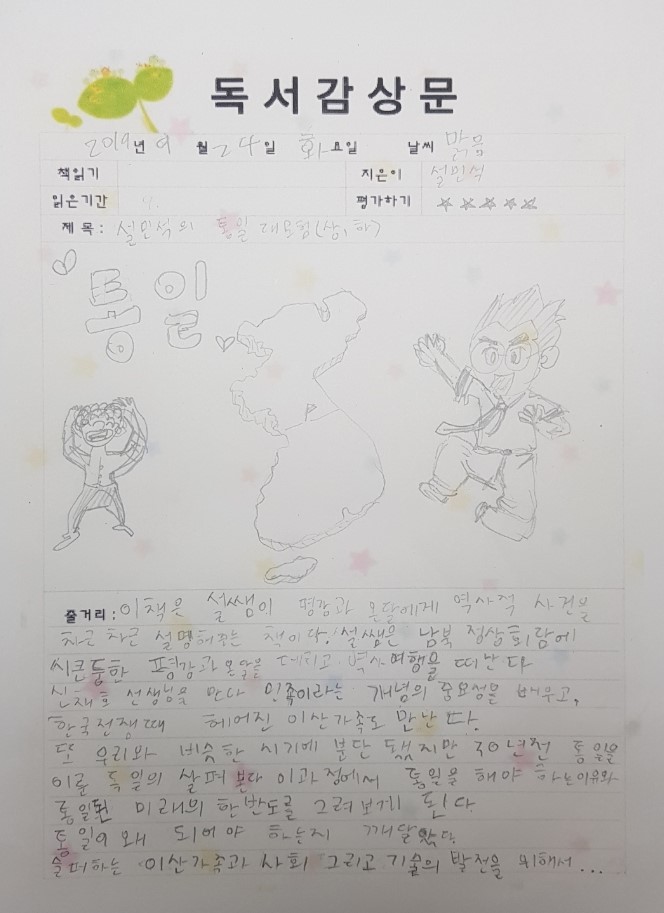 독서감상문
2019년 9월 24일 화요일 날씨 맑음
책읽기 지은이 설민석
읽은기간 평가하기 ★★★★★
제 목 : 설민석의 통일 대모험(상,하)
통일
줄거리 : 이책은 설쌤이 평강과 온달에게 역사적 사건을
차근 차근 설명해주는 책이다. 설쌤은 남북 정상회담에
시큰둥한 평강과 온달을 데리고 역사여행을 떠난다
신채호 선생님을 만나 민족이라는 개념의 중요성을 배우고,
한국전쟁때 헤어진 이산가족도 만난다.
또 우리와 비슷한 시기에 분단 됐지만 30년전 통일을
이룬 독일의 살펴 본다 이과정에서 통일을 해야 하는이유와
통일된 미래의 한반도를 그려보게 된다.
통일이 왜 되어야 하는지 깨달았다.
슬퍼하는 이산가족과 사회 그리고 기술의 발전을 위해서...